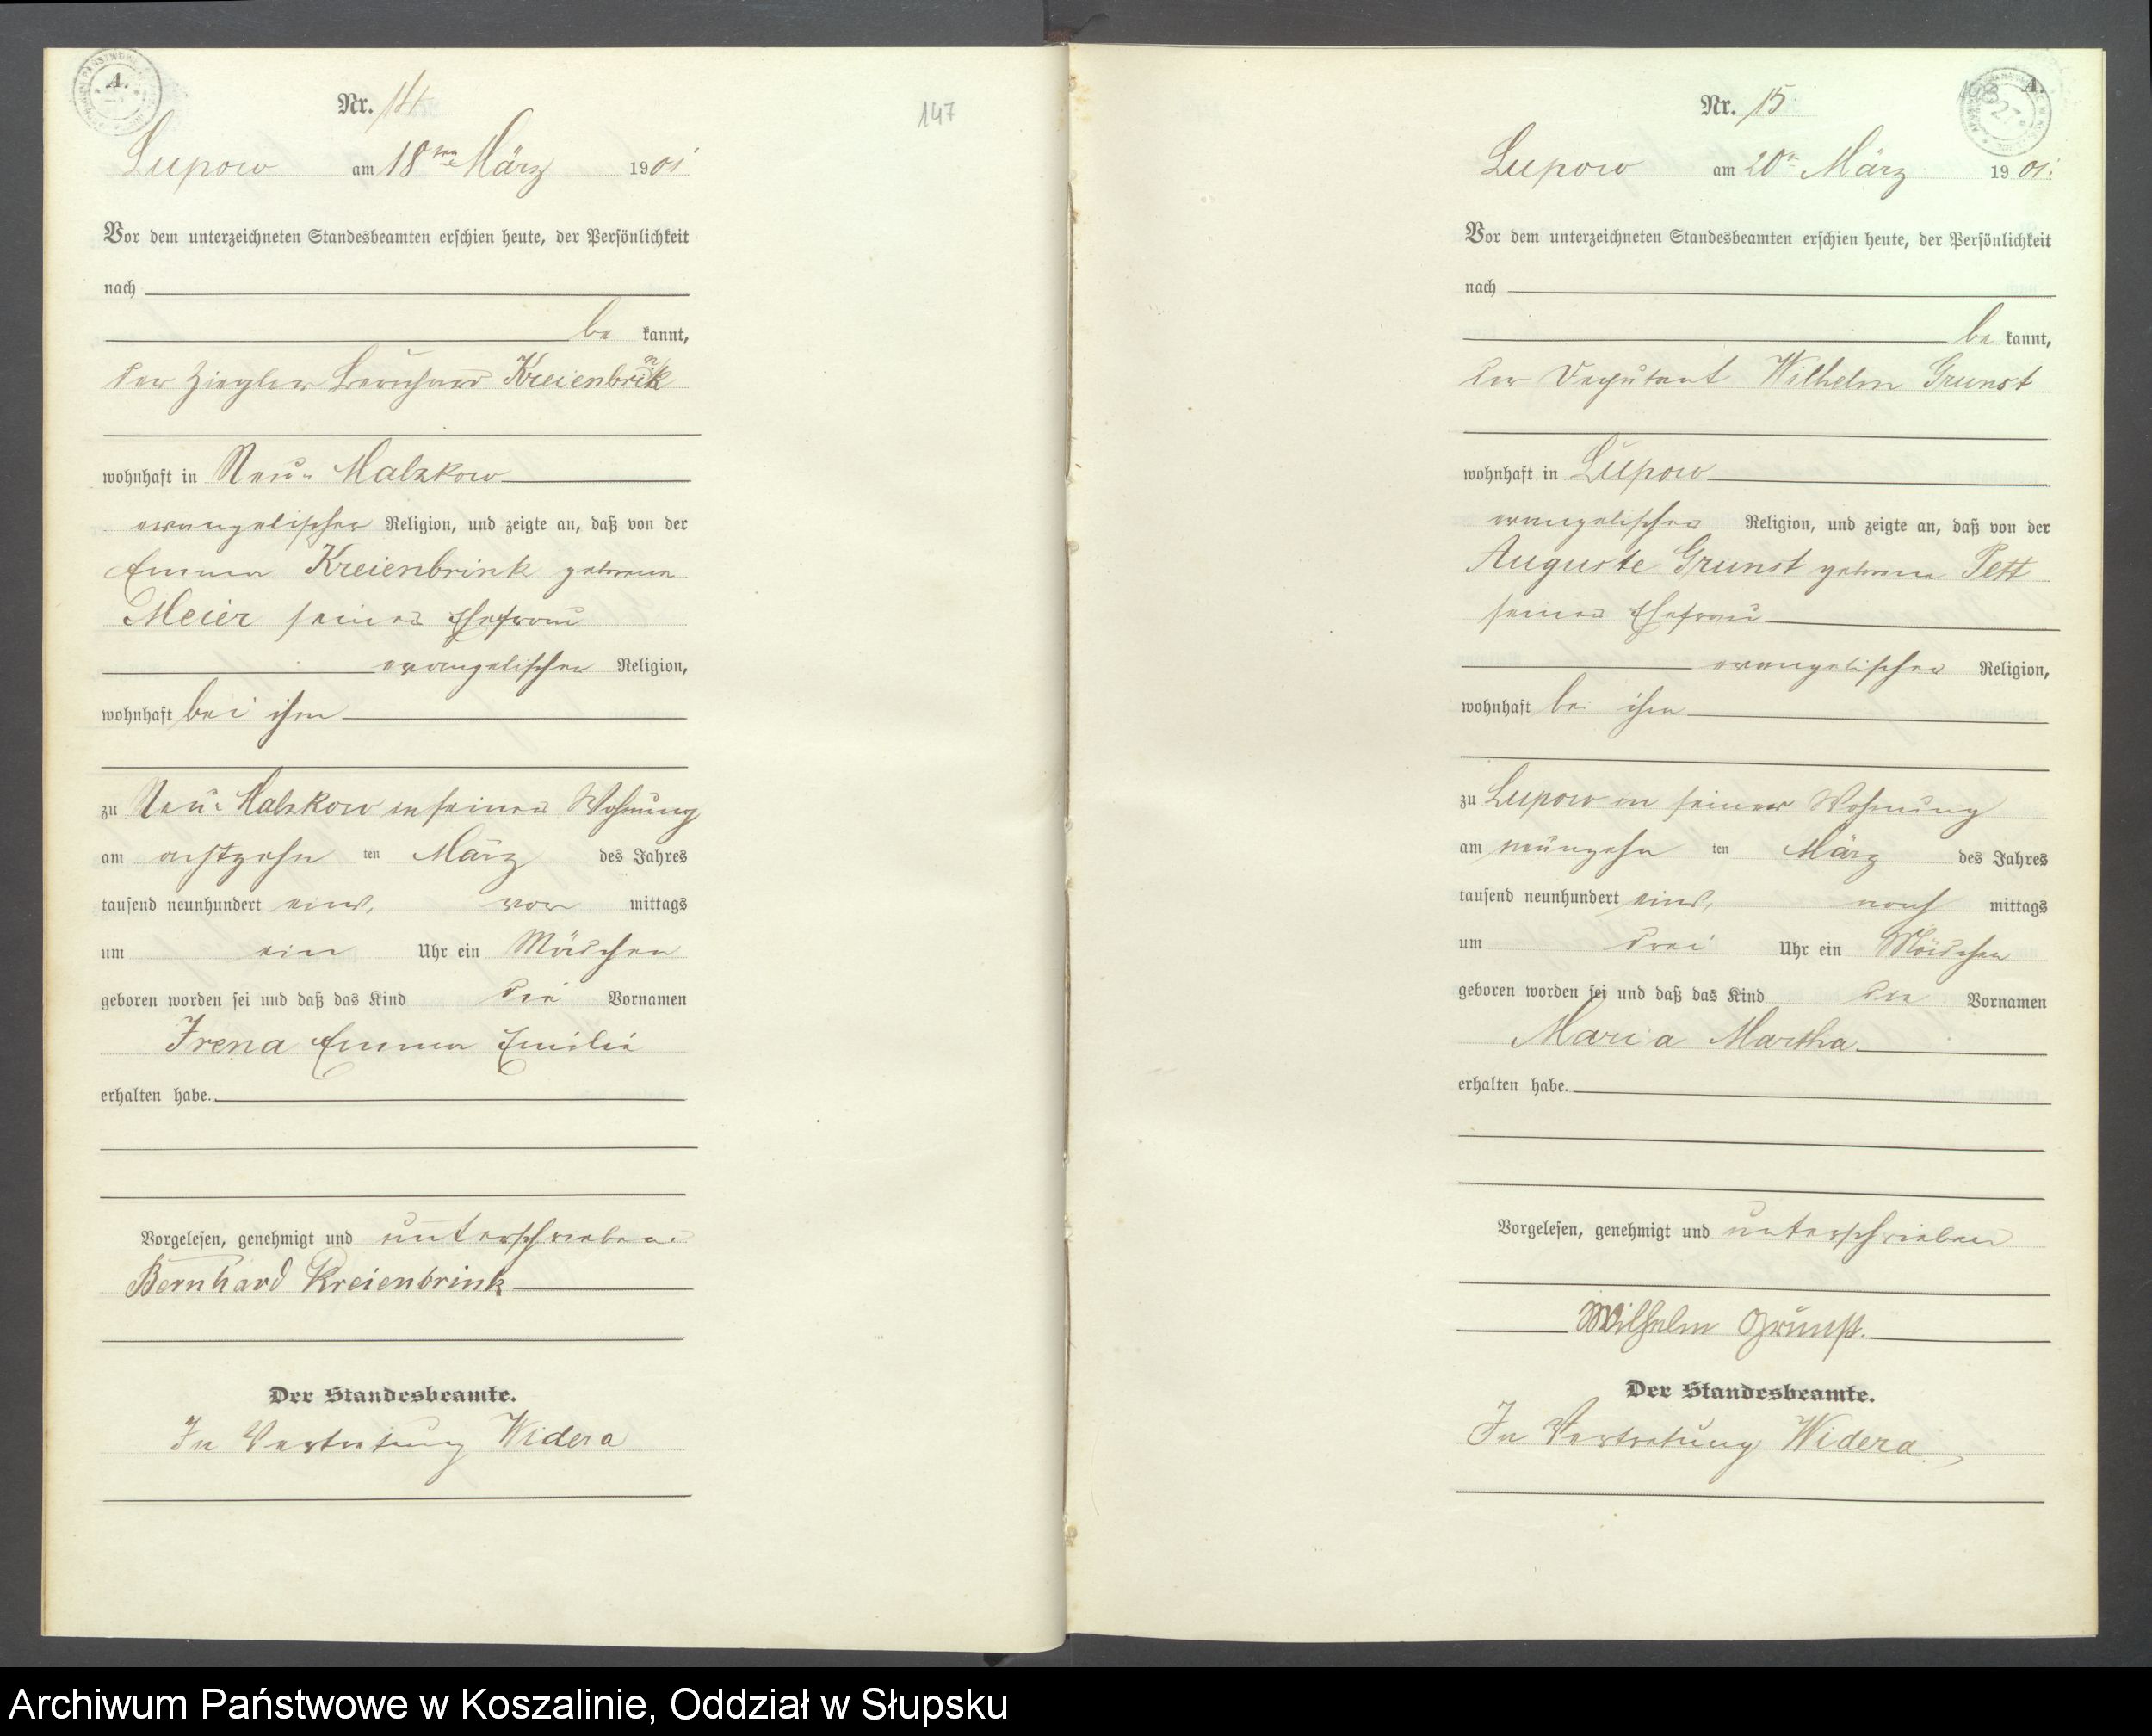 A.
Nr. 14
147
Lupow am 18ten März 1901
Vor dem unterzeichneten Standesbeamten erschien heute, der Persönlichkeit
nach
be kannt,
der Ziegler Bernhard Kreienbrink
wohnhaft in Neu-Malzkow
evangelischer Religion, und zeigte an, daß von der
Emma Kreienbrink geborene
Meier seiner Ehefrau
evangelischer Religion,
wohnhaft bei ihm
zu Neu-Malzkow in seiner Wohnung
am achtzehn ten März des Jahres
tausend neunhundert eins, vor mittags
um ein Uhr ein Mädchen
geboren worden sei und daß das Kind die Vornamen
Irena Emma Emilie
erhalten habe.
Vorgelesen, genehmigt und unterschrieben.
Bernhard Kreienbrink
Der Standesbeamte.
In Vertretung Widera
A.
Nr. 15
Lupow am 20n März 1901.
Vor dem unterzeichneten Standesbeamten erschien heute, der Persönlichkeit
nach
be kannt,
der Deputant Wilhelm Grunst
wohnhaft in Lupow
evangelischer Religion, und zeigte an, daß von der
Auguste Grunst geborene Pett
seiner Ehefrau
evangelischer Religion,
wohnhaft bei ihm
zu Lupow in seiner Wohnung
am neunzehn ten März des Jahres
tausend neunhundert eins, nach mittags
um drei Uhr ein Mädchen
geboren worden sei und daß das Kind die Vornamen
Maria Martha
erhalten habe.
Vorgelesen, genehmigt und unterschrieben
Wilhelm Grunst.
Der Standesbeamte.
In Vertretung Widera.
Archiwum Państwowe w Koszalinie, Oddział w Słupsku